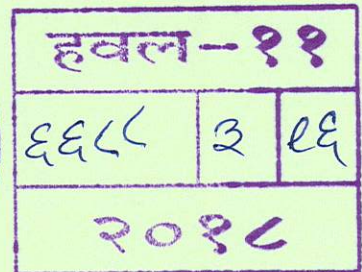 हवल-११
६६८८ ३ १६
२०१८